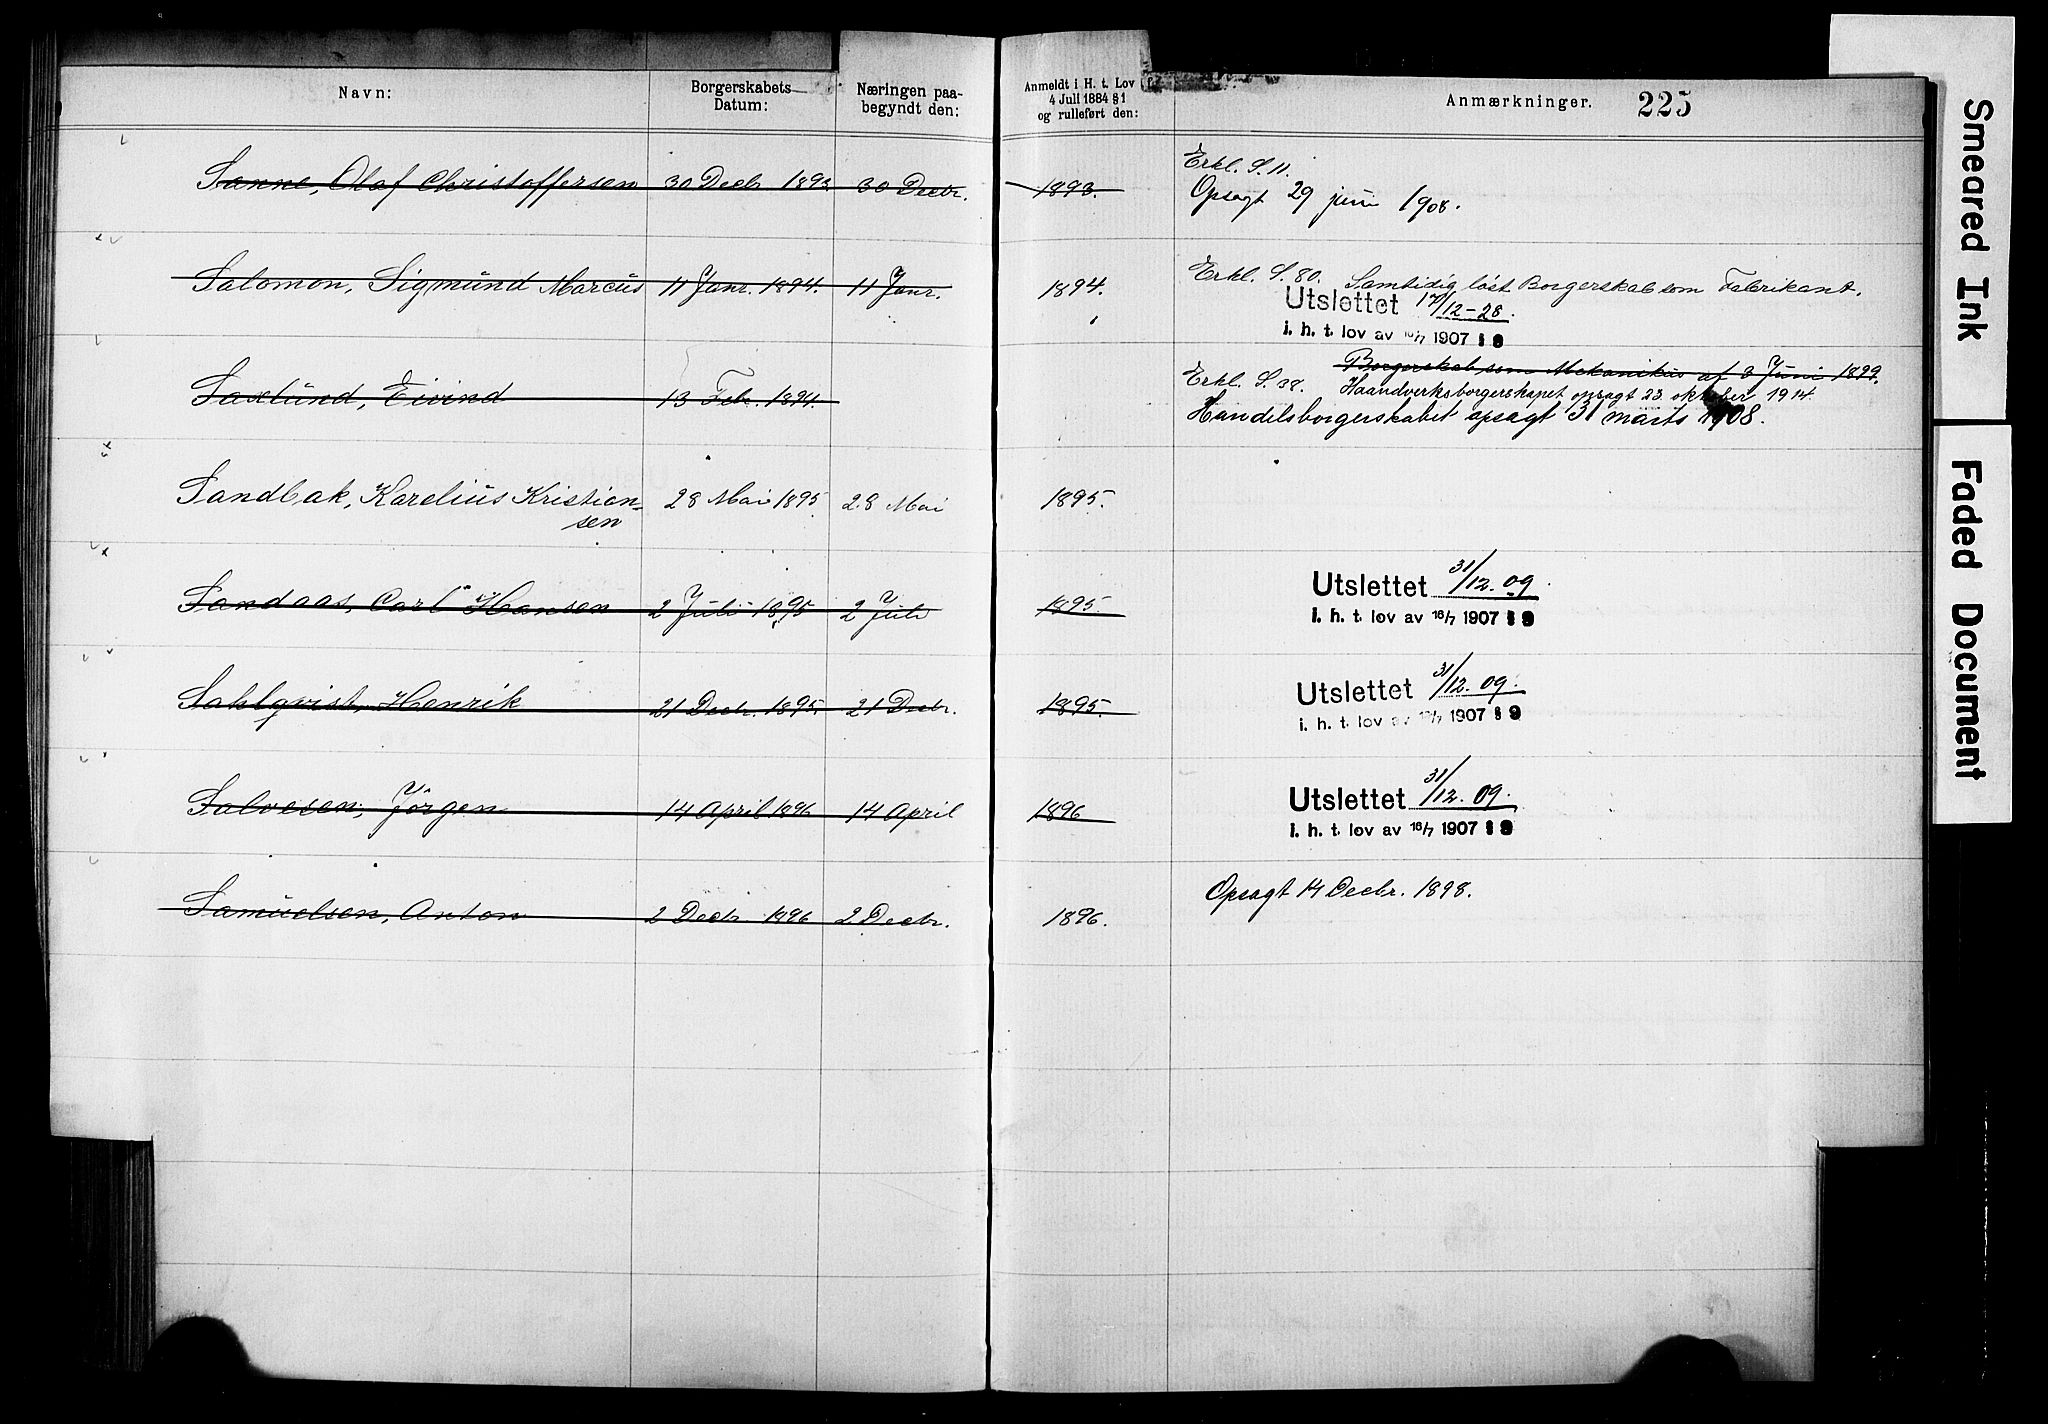 Navn:
Borgerskabets
Datum:
Næringen paa-
begyndt den:
Anmeldt i H. t. Lov
4 Juli 1884 § 1
og rulleført den:
Anmærkninger.
225
Sanne, Olaf Christoffersen 30 Decbr 1893 30 Decbr. 1893.
Erkl. S. 11.
Opsagt 29 juni 1908.
Salomon, Sigmund Marcus 11 Janr. 1894. 11 Janr. 1894.
Erkl. S. 80. Samtidig löst Borgerskab som Fabrikant.
Utslettet 17/12-28.
i. h. t. lov av 16/7 1907 § 9
Saxlund, Eivind 13 Feb. 1894.
Borgerskab som Mekanikus af 3 Juni 1899.
Erkl. S. 38. Haandverksborgerskapet opsagt 23. oktober 1914.
Handelsborgerskabet opsagt 31 marts 1908.
Sandbak, Karelius Kristian-
sen
28 Mai 1895 28 Mai 1895.
Sandaas, Carl Hansen 2 Juli 1895 2 Juli 1895
Utslettet 31/12. 09.
i. h. t. lov av 16/7 1907 § 9
Sahlqvist, Henrik 21 Decbr. 1895. 21 Decbr. 1895.
Utslettet 31/12. 09.
i. h. t. lov av 16/7 1907 § 9
Salvesen, Jörgen 14 April 1896 14 April 1896
Utslettet 31/12. 09.
i. h. t. lov av 16/7 1907 § 9
Samuelsen, Anton 2 Decbr 1896 2 Decbr. 1896.
Opsagt 14 Decbr. 1898.
Smeared Ink
Faded Document